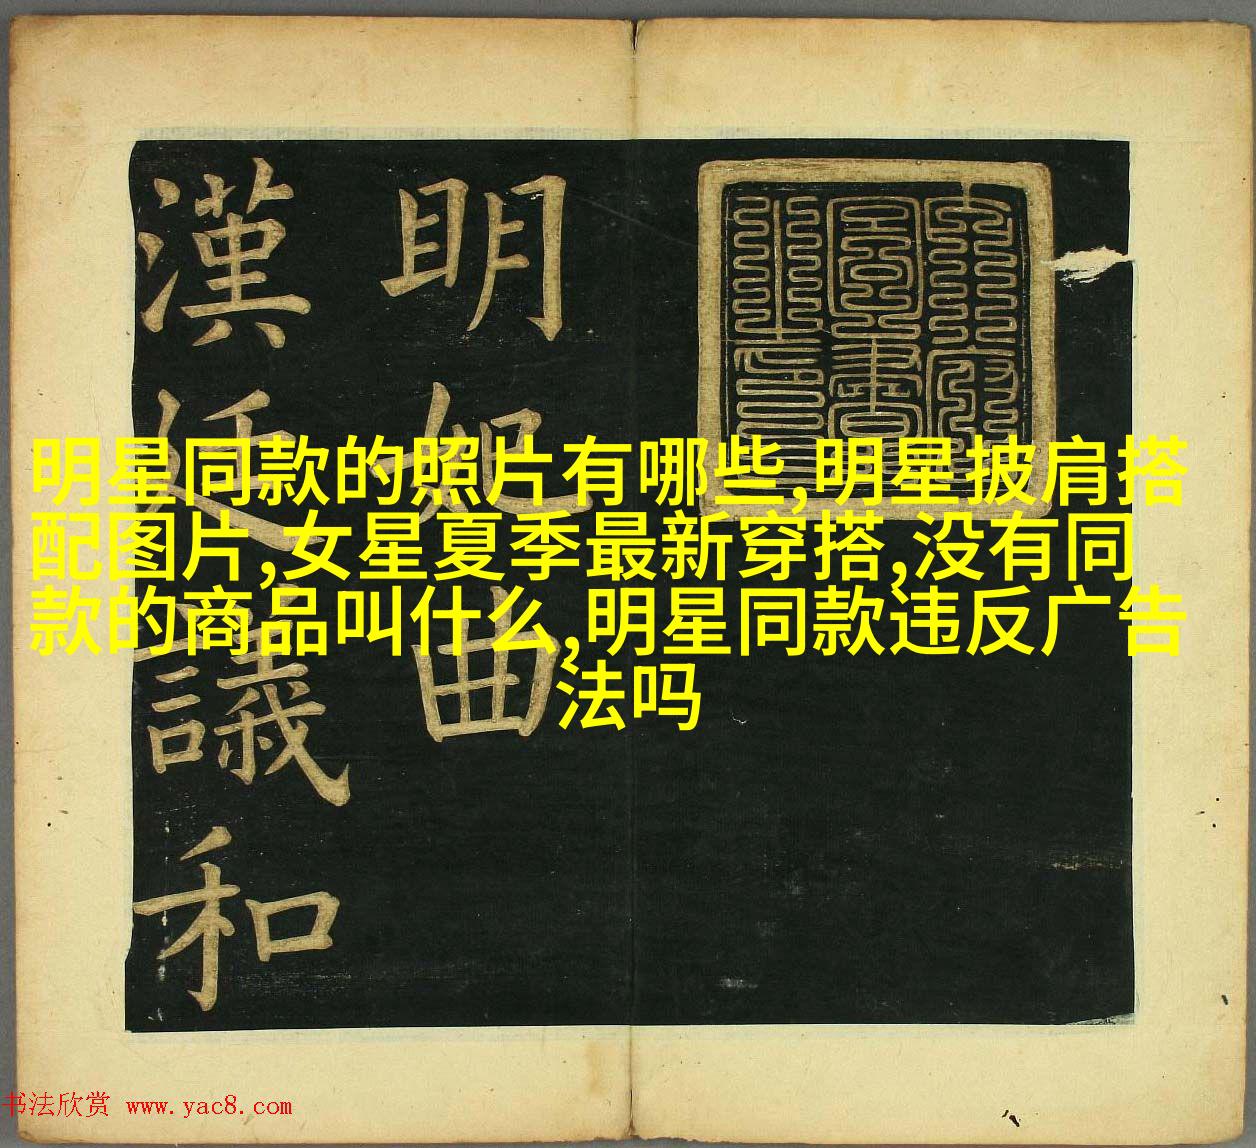 明星同款的照片有哪些,明星披肩搭
配图片,女星夏季最新穿搭,没有同
款的商品叫什么,明星同款违反广告
法吗
明妃曲
漢廷議和
书法欣赏 www.yac8.com